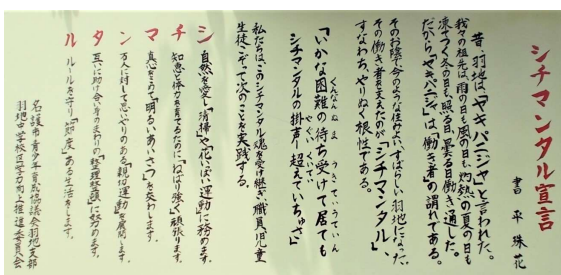 シチマンタル宣言
書 平 珠花
昔、羽地は、「ヤキバニジャ」と言われた。
我々の祖先は、雨の日も風の日も、灼熱の夏の日も
凍てつく冬の日も、照る日、曇る日働き通した。
だから、「ヤキバニジ」は、働き者の謂れである。
そのお陰で、今のような住みよい、すばらしい羽地になった。
その働き者を支えたのが「シチマンタル」、
すなわち、やりぬく根性である。
「いかな困難の待ち受けて居ても
シチマンタルの掛声し超えていちゅさ」
私たちは、このシチマンタル魂を受け継ぎ、職員、児童
生徒こぞって次のことを実践する。
シ 自然を愛し「清掃」や「花いっぱい運動」に務めます。
チ 知恵と体力を育てるために「ねばり強く」頑張ります。
マ 真心をこめて「明るいあいさつ」を交わします。
ン 万人に対して思いやりのある「親切運動」を展開します。
タ 互いに助け合い身のまわりの「整理整頓」に努めます。
ル ルールを守り「節度」ある生活をします。
名護市青少年育成協議会羽地支部
羽地中学校区学力向上推進委員会